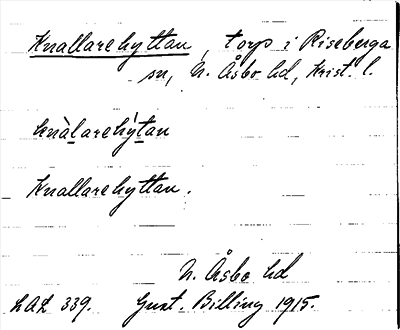 Knallarehyttan, torp i Riseberga
sn, N. Åsbo hd, Krist. l.
knàlarehýtan
Knallarehyttan.
N. Åsbo hd
LAL 339. Gust. Billing 1915.